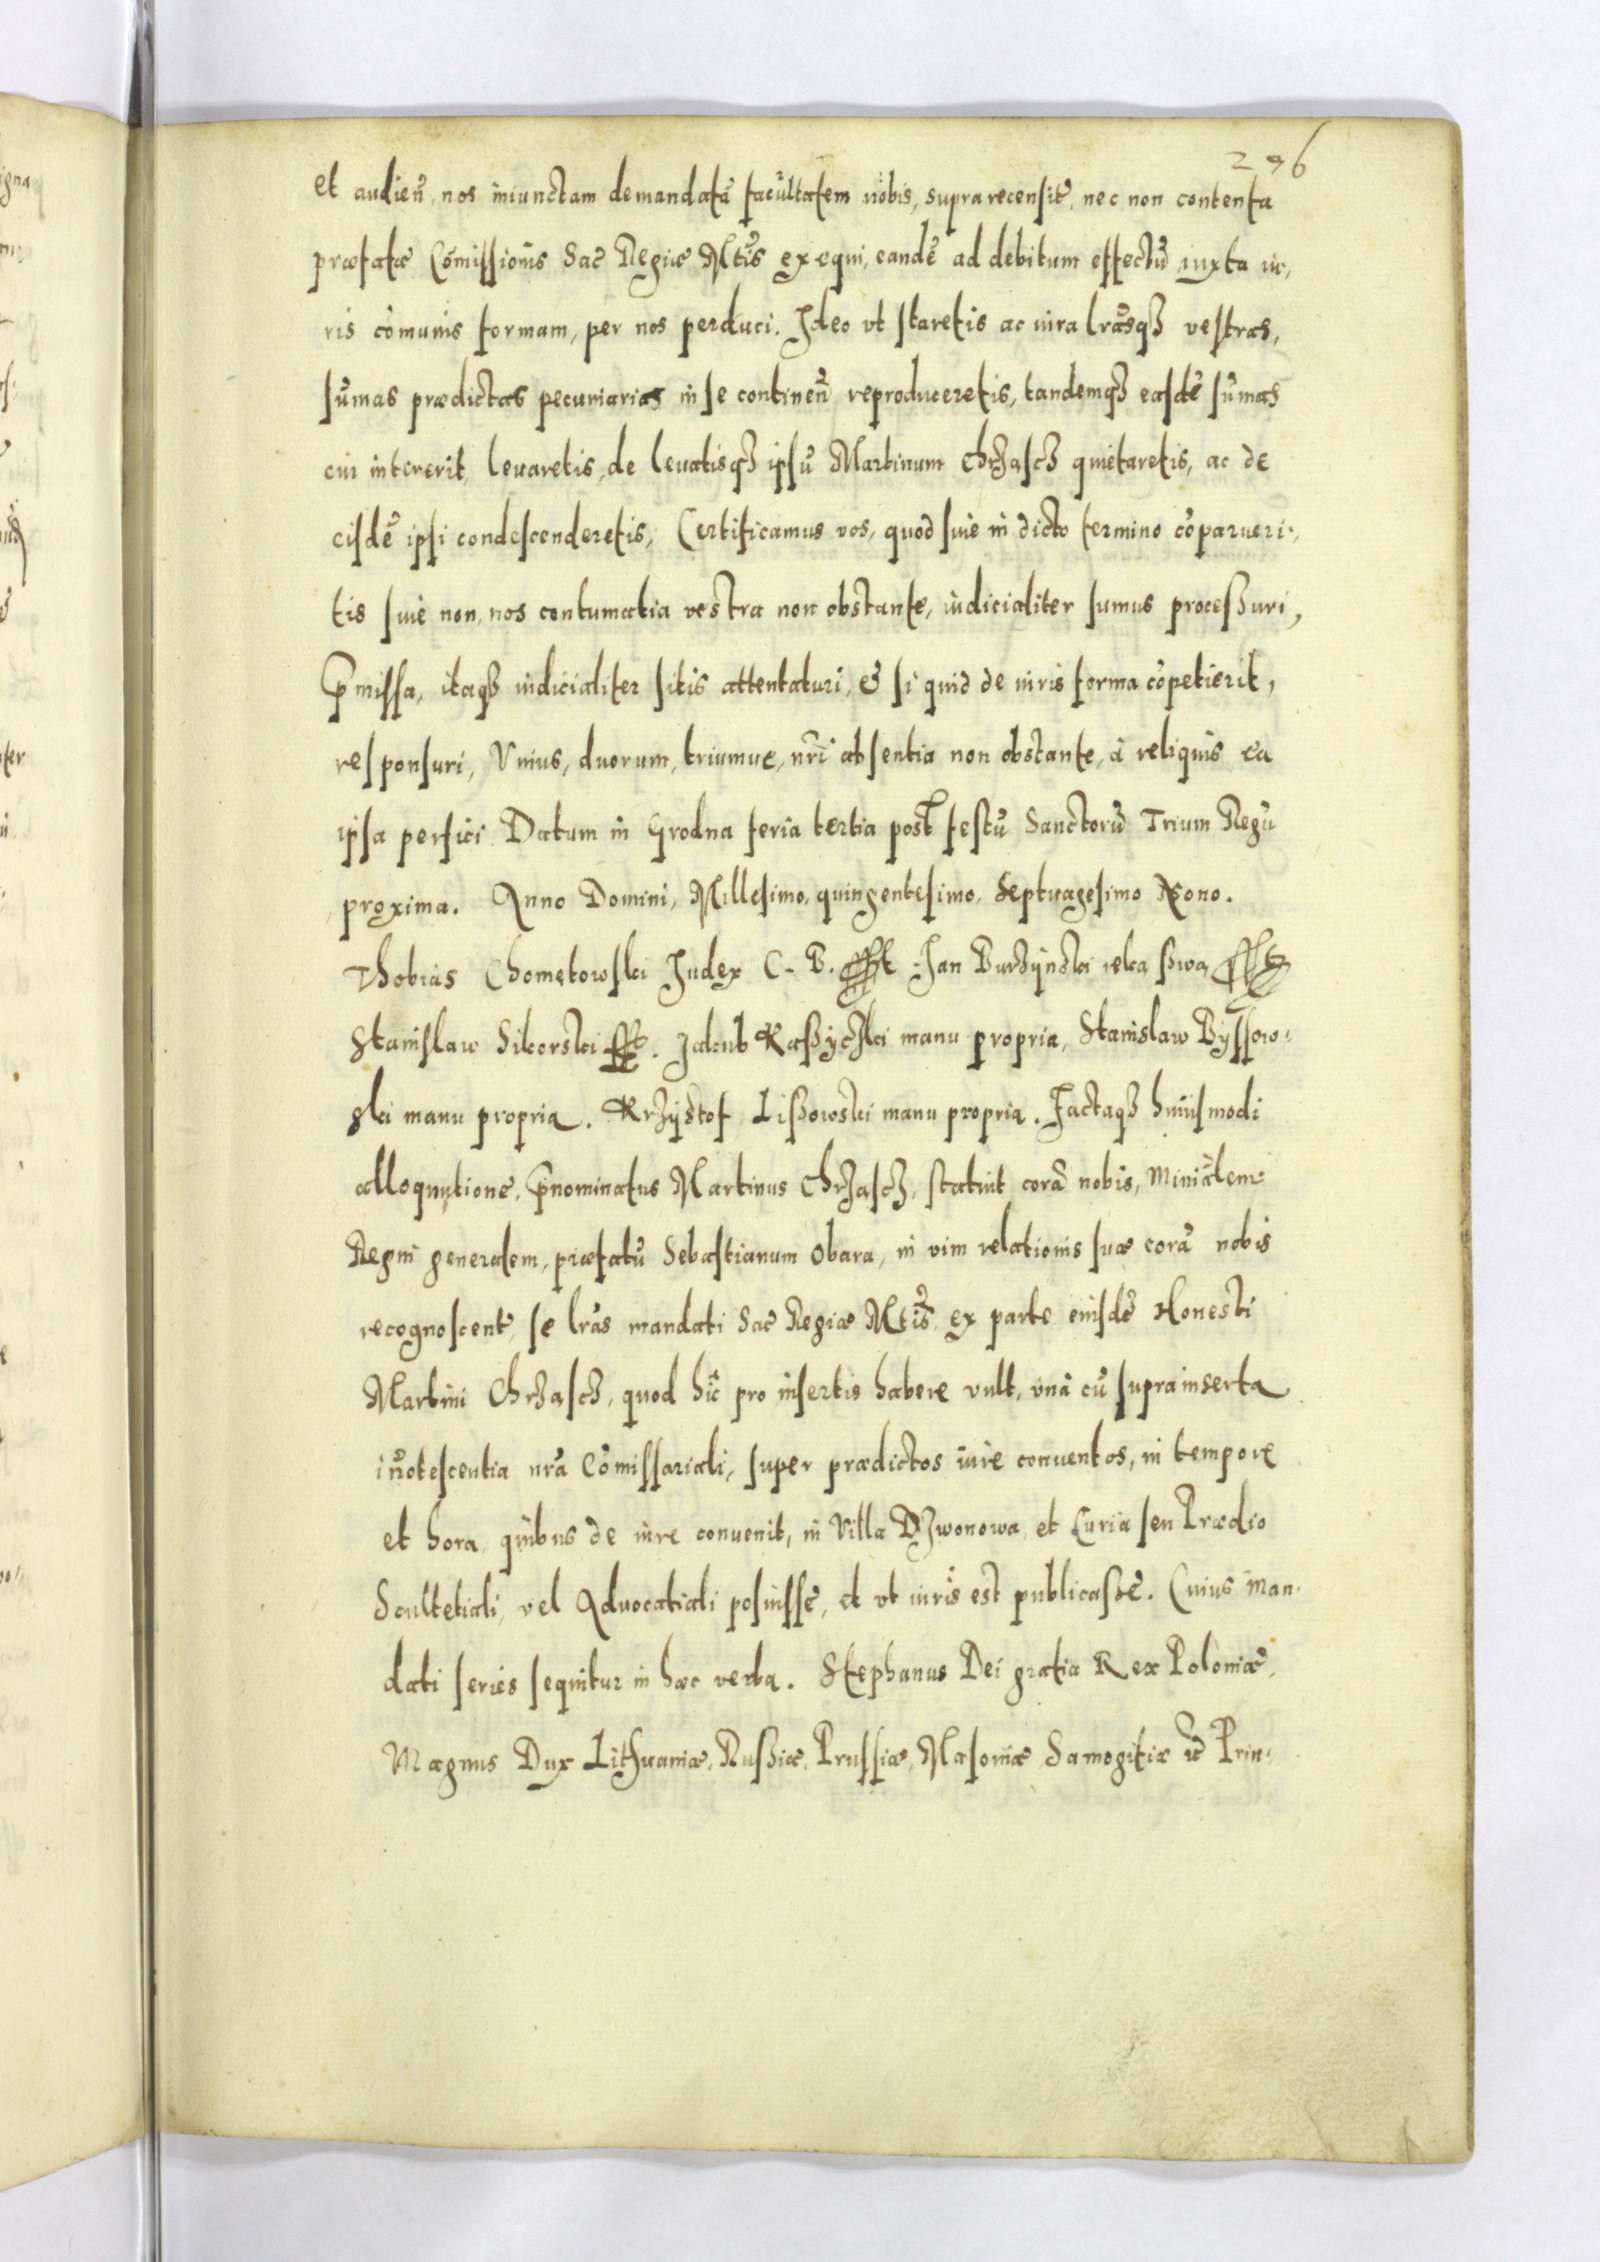 296
et audien̄, nos iniunctam demandatā facultatem nobis, supra recensit̄, nec non contenta
præfatæ Com̄issionis Sac̄ Regiæ Mt̄is exequi, eandē ad debitum effectū iuxta iu-
ris com̄unis formam, per nos perduci. Ideo vt staretis ac iura lrāsqȝ vestras,
sūmas prædictas pecuniarias in se continen̄ reproduceretis, tandemqȝ easdē sūmas
cui intererit, leuaretis, de leuatisqȝ ipsū Martinum Chrząscz quietaretis, ac de
eisdē ipsi condescenderetis, Certificamus vos, quod siue in dicto termino cōparueri-
tis siue non, nos contumatia vestra non obstante, iudicialiter sumus processuri,
p̄missa, itaqȝ iudicialiter sitis attentaturi, & si quid de iuris forma cōpetierit,
responsuri, Vnius, duorum, triumue, nr̄i absentia non obstante, à reliquis ea
ipsa perfici. Datum in Grodna feria tertia post festū Sanctorū Trium Regū
proxima. Anno Domini, Millesimo, quingentesimo, Septuagesimo Nono.
Thobias Chomętowski Judex C. B. Jan Burzÿnski ręka swą
Stanislaw Sikorski. Jakub Raßyczki manu propria, Stanislaw Byssow-
ski manu propria. Krzÿstof Lißowski manu propria. Factaqȝ huiusmodi
alloquutione, p̄nominatus Martinus Chrząscz, statuit corā nobis, Miniālem
Regni generalem, præfatū Sebastianum Obara, in vim relationis suæ corā nobis
recognoscent̄ se lrās mandati Sac̄ Regiæ Mt̄is ex parte eiusdē Honesti
Martini Chrząscz, quod hic̄ pro insertis habere vult, vnà cū suprainserta
in̄otescentia nrā Com̄issariali, super prædictos iure conuentos, in tempore
et hora quibus de iure conuenit, in Villa Dzwonowa et Curia seu Prædio
Scultetiali, vel Aduocatiali posuisse, et vt iuris est publicasse. Cuius Man-
dati series sequitur in hæc verba. Stephanus Dei gratia Rex Poloniæ,
Magnus Dux Lithuaniæ, Rußiæ, Prussiæ, Masoniæ Samogitiæ &c̄ Prin-